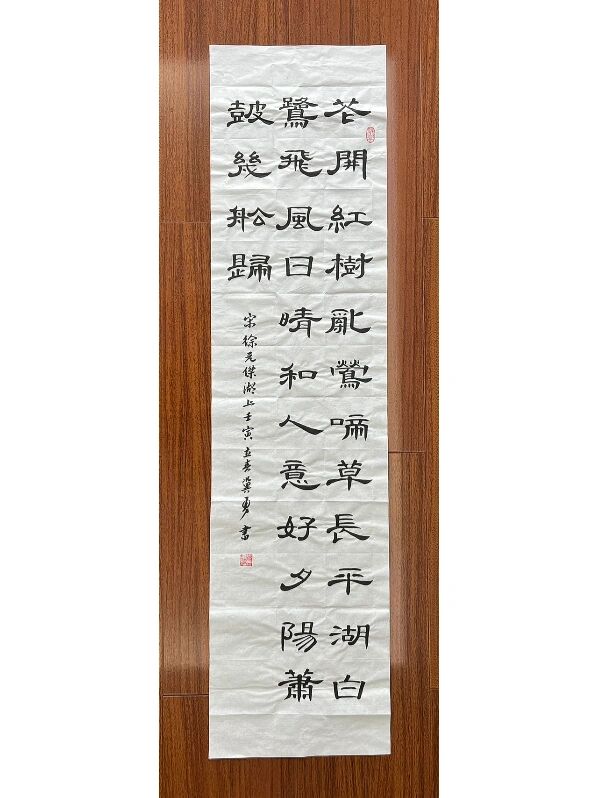 花開紅樹亂鶯啼草長平湖白
鷺飛風日晴和人意好夕陽蕭
鼓幾船歸
宋徐元傑湖上壬寅立春冀勇書